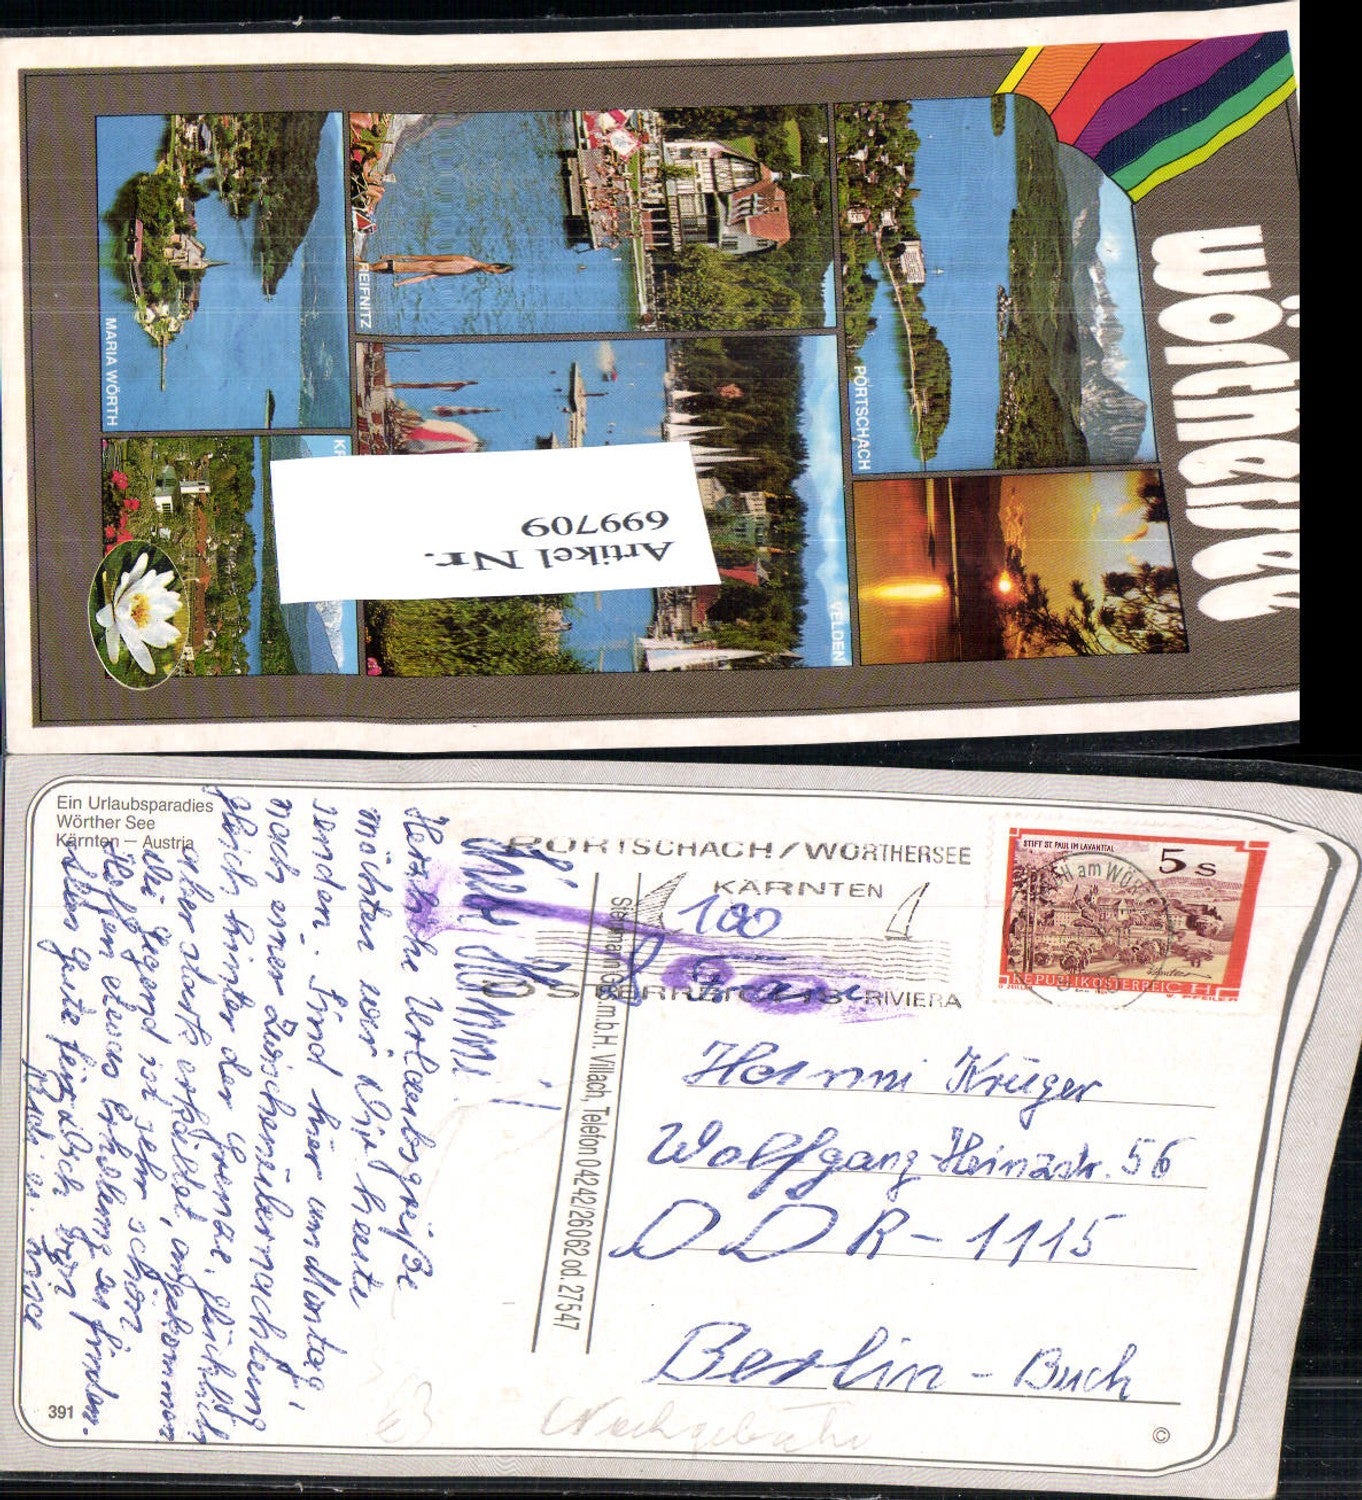 Wörthersee
PÖRTSCHACH
REIFNITZ
VELDEN
MARIA WÖRTH
Artikel Nr.
699709
Ein Urlaubsparadies
Wörther See
Kärnten — Austria
PÖRTSCHACH/WÖRTHERSEE
KÄRNTEN
ÖSTERREICHS RIVIERA
STIFT ST. PAUL IM LAVANTTAL
5 S
REPUBLIK ÖSTERREICH
100
m.b.H. Villach, Telefon 0 42 42/26062 od. 27547
Herzliche Urlaubsgrüße
möchten wir Dir heute
senden. Sind hier am Montag,
nach einer Zwischenübernachtung
gleich hinter der Grenze, glücklich
aber stark verspätet, angekommen
die Gegend ist sehr schön
Hoffen etwas Erholung zu finden.
Hanni Krüger
Wolfgang-Heinzstr. 56
DDR - 1115
Berlin - Buch
Nachgebühr
391
©